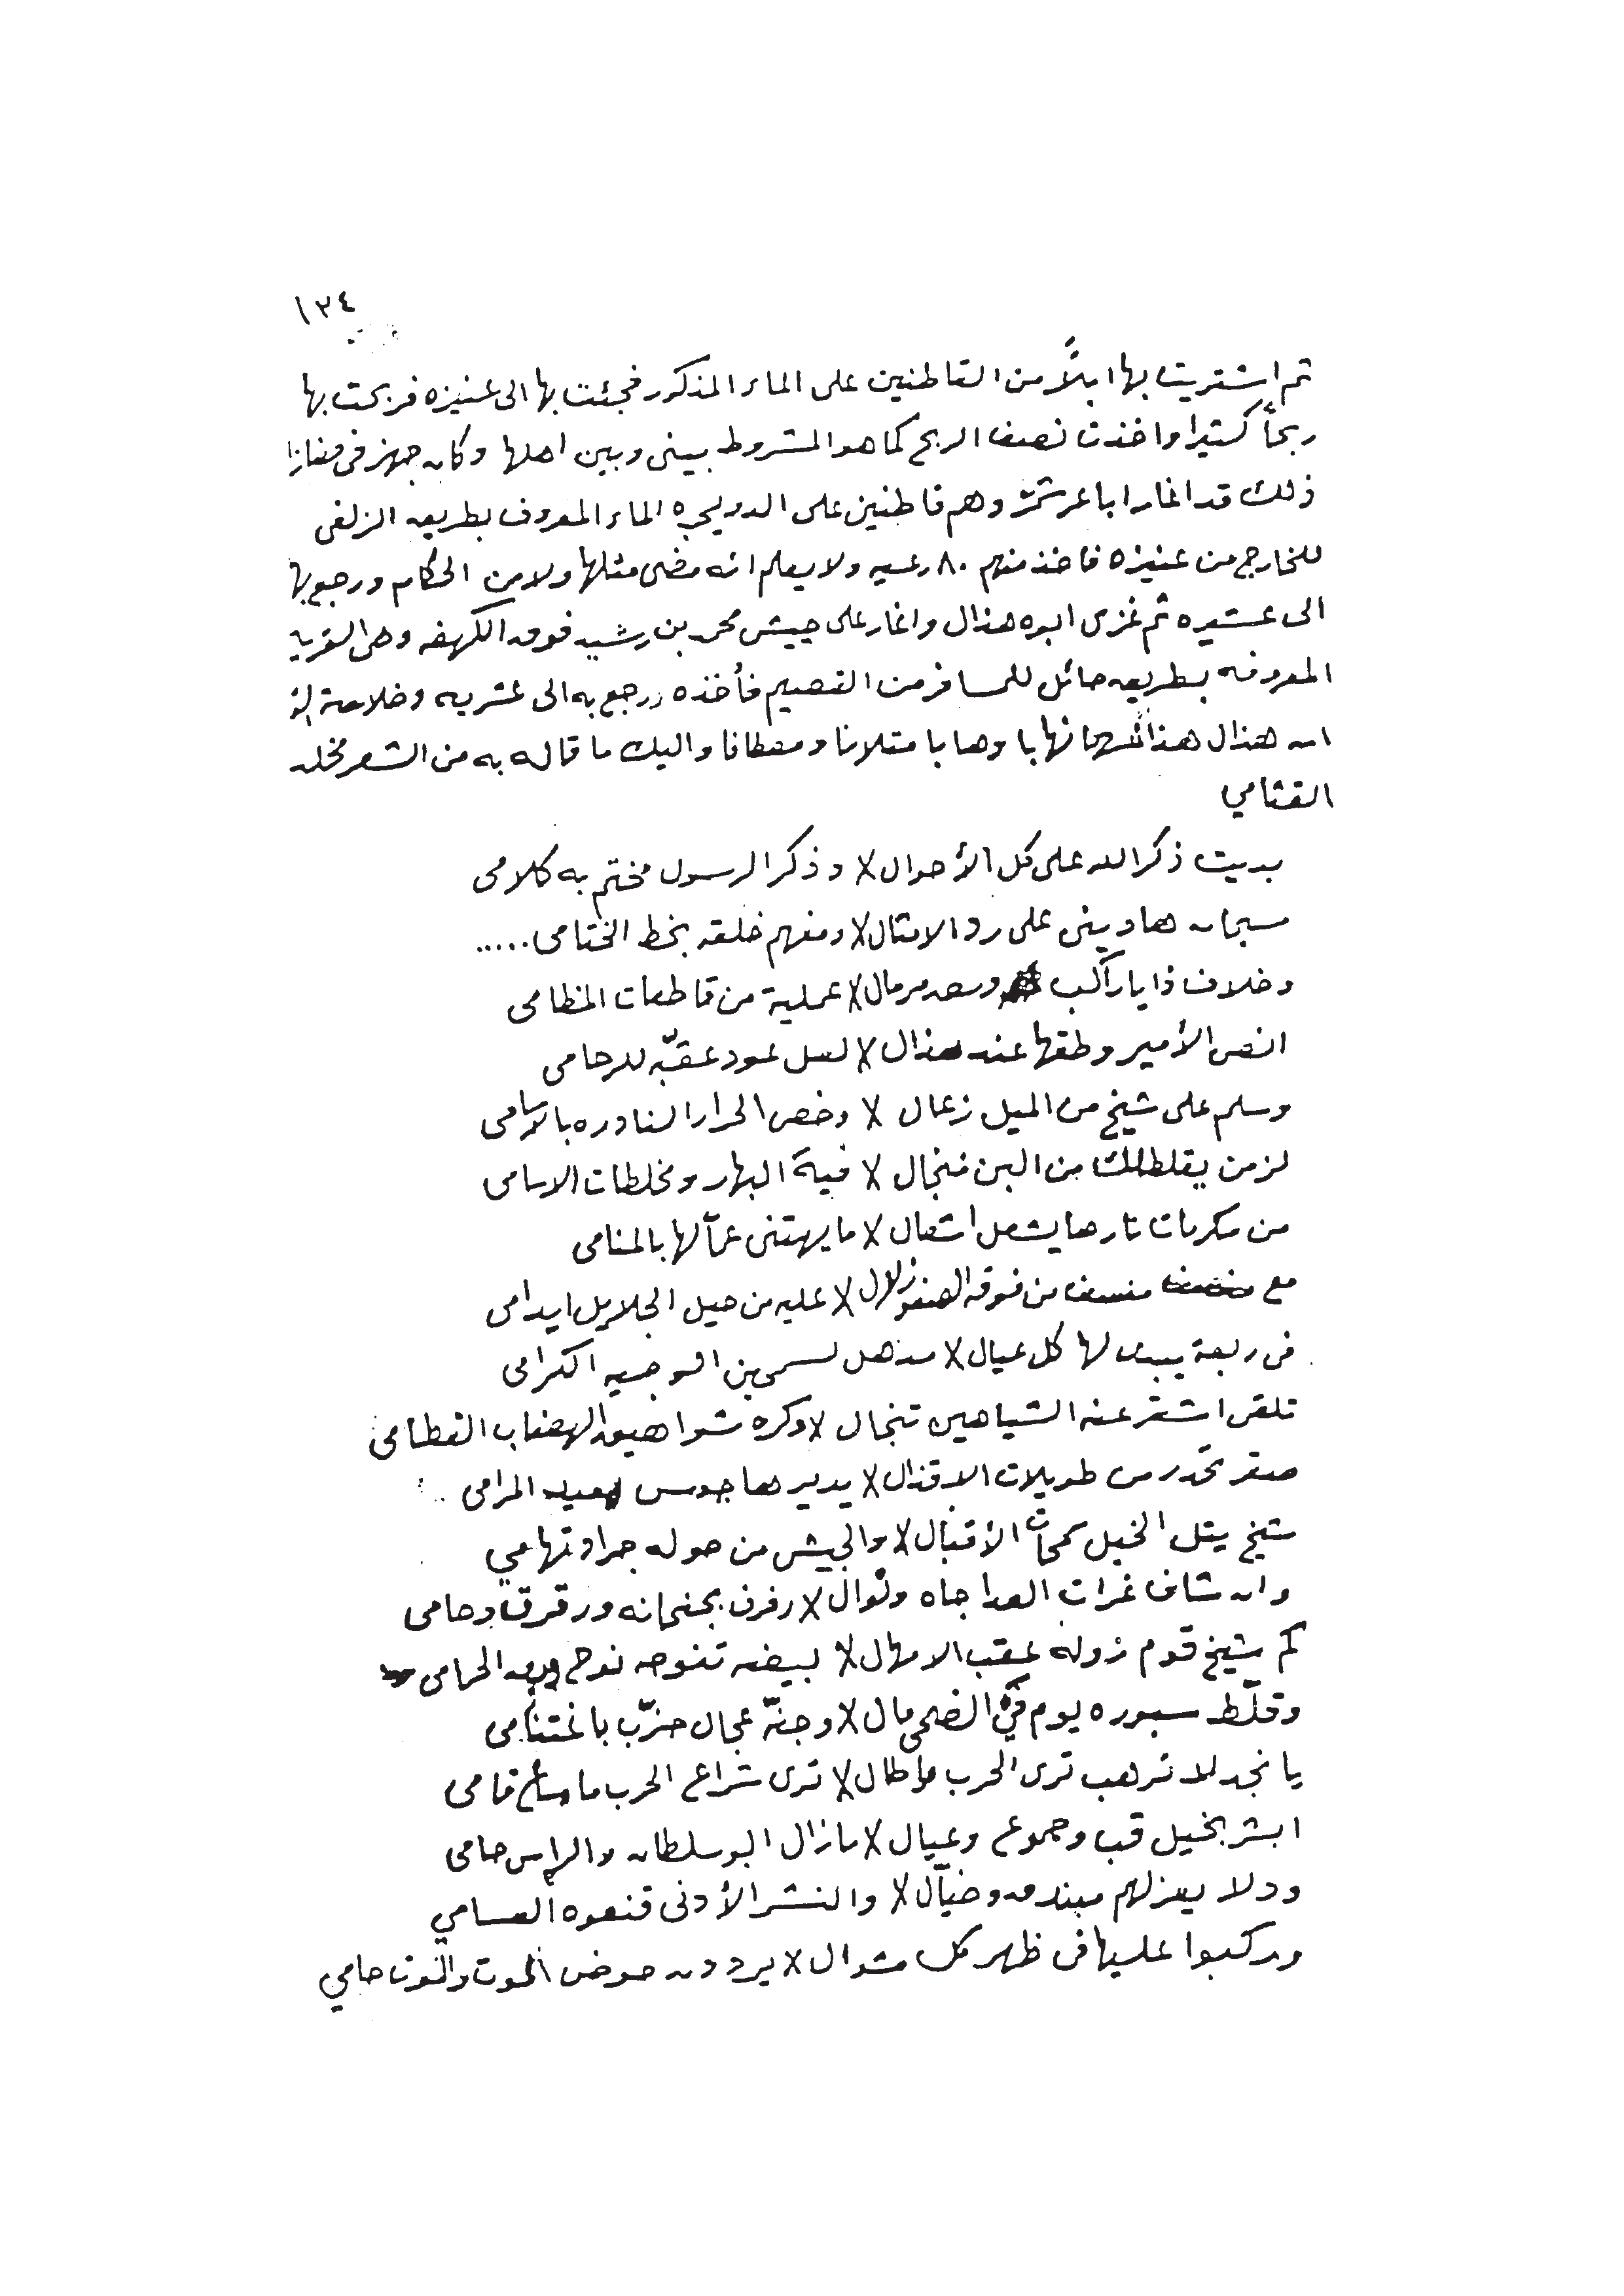 ١٣٤
ثم اشتريت بها ابلاً من القاطنين على الماء المذكور فجئت بها الى عنيزه فربحت بها
ربحاً كثيرا واخذت نصف الربح كما هو المشروط بيني وبين اهلها وكان جهز في
ذلك قد اغار اباعر شمر وهم قاطنين على الدويحره الماء المعروف بطريق الزلفى
للخارج من عنيزه فاخذ منهم ٨٠ رعيه ولا يعلم انه مضى مثلها ولا من الحكام ورجع بها
الى عشيره ثم غزى ابوه هذال واغار على جيش محمد بن رشيد فوق الكهفه وهى القريه
المعروفه بطريق حائل للمسافر من القصيم فأخذه ورجع به الى عشريه وخلاصة
ان هذال هذا نهابا وهابا متلافا ومعطافا واليك ما قاله به من الشعر مخلد
القثامي
بديت ذكر الله على كل الأحوال لا وذكر الرسول مختم به كلامى
سبحان هادينى على رد الامثال لا ومفهم خلقه بخط الختامى .....
وخلاف ذا ياراكب وسعد مرمال لا عملية من قاطعات المظامى
انص الأمير وطقها عند هذال لا لعل عود عقبّه للرحامى
وسلم على شيخ من الميل زعال لا وخص الحرار النادره بالاسامى
لزمن يقلطلك من البن فنجال لا فيه البهار ومخلطات الاسامى
من مكرمات نارها يشعل اشعال لا ما يهتنى عمآلها بالمنامى
مع منسف من فوقه الصفو زلال لا عليه من حيل الجلايل ايدامى
فى ربعة يبدى لها كل عيال لا مدهل الوجيه الكرامى
تلقى اشقر عنه الشياهين تنجال لا وكره شواهيق الهضاب القطامى
صقر تحدر من طويلات الاقذال لا يدير هاجوس بعيد المرامى
شيخ يتل الخيل كمحات الأقبال لا والجيش من حوله جراد تهامي
وان شاف غرات العدا جاه ونوال لا رفرف بجنحانه ورقرق وحامى
كم شيخ قوم زوله عقب الامهال لا لبيضه تنوحه نوح ورق الحمامى
وقلّط سبوره يوم فيّ الضحى مال لا وجنّه عجال حزّب باغتنامى
يا نجد لا ترهب ترى الحرب ما طال لا ترى شراع الحرب ما قامى
ابشر بخيل قب وجموع وعيال لا مازال ابو سلطان والراس حامى
ودلا يعزلهم مبندق وخيآل لا والنشر الأدنى قنعوه العسامي
وركبوا عليها فى ظهر كل مشوال لا يردون حوض الموت والموت حامي